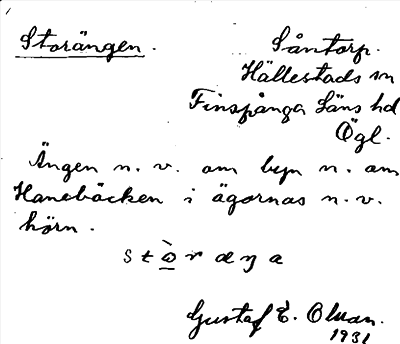 Storängen.
Såntorp.
Hällestads sn
Finspånga läns hd
Ögl.
Ängen n. v. om byn n. om
Hanebäcken i ägornas n. v.
hörn.
Gustaf E. Olman.
1931